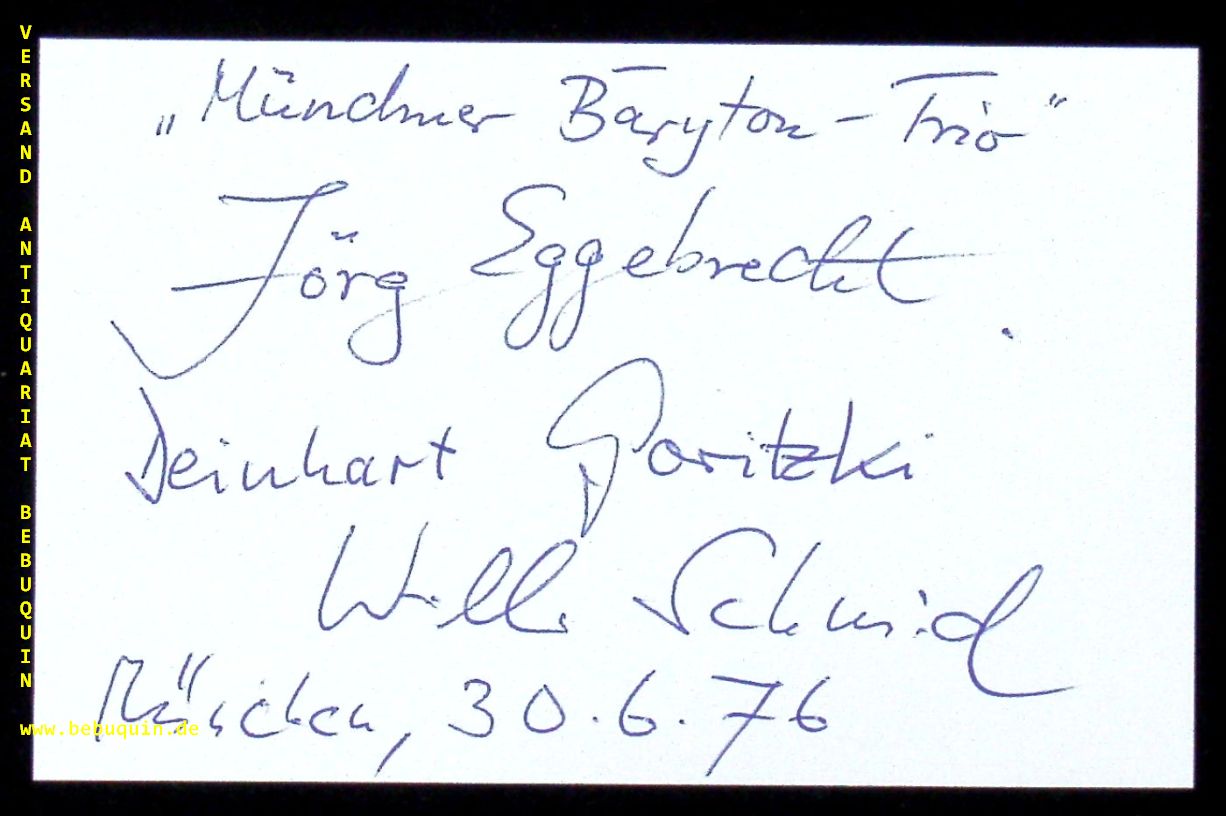 „Münchner Baryton-Trio"
Jörg Eggebrecht
Deinhart Goritzki
Willi Schmid
München, 30.6.76
VERSAND ANTIQUARIAT BEBUQUIN
www.bebuquin.de